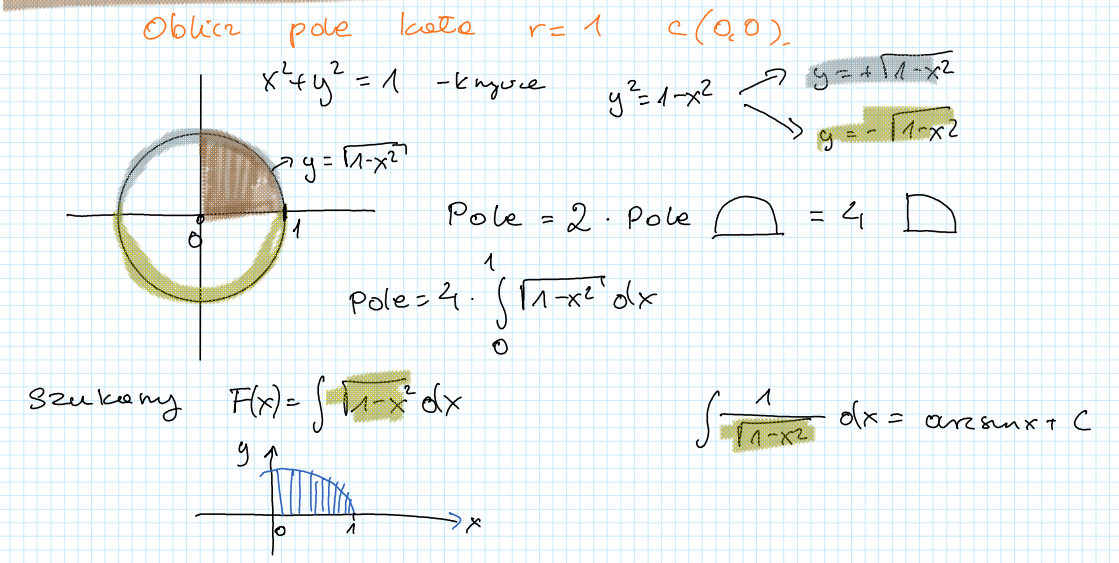 Oblicz pole koła r=1 c(0,0).
x²+y²=1 - krzywe
y²=1-x²
y=+√1-x²
y=-√1-x²
y=√1-x²
0 1
Pole = 2 · Pole = 4
Pole = 4 · ∫₀¹ √1-x² dx
Szukamy F(x)=∫√1-x² dx
∫ 1/√1-x² dx = arcsinx + C
y
0 1 x